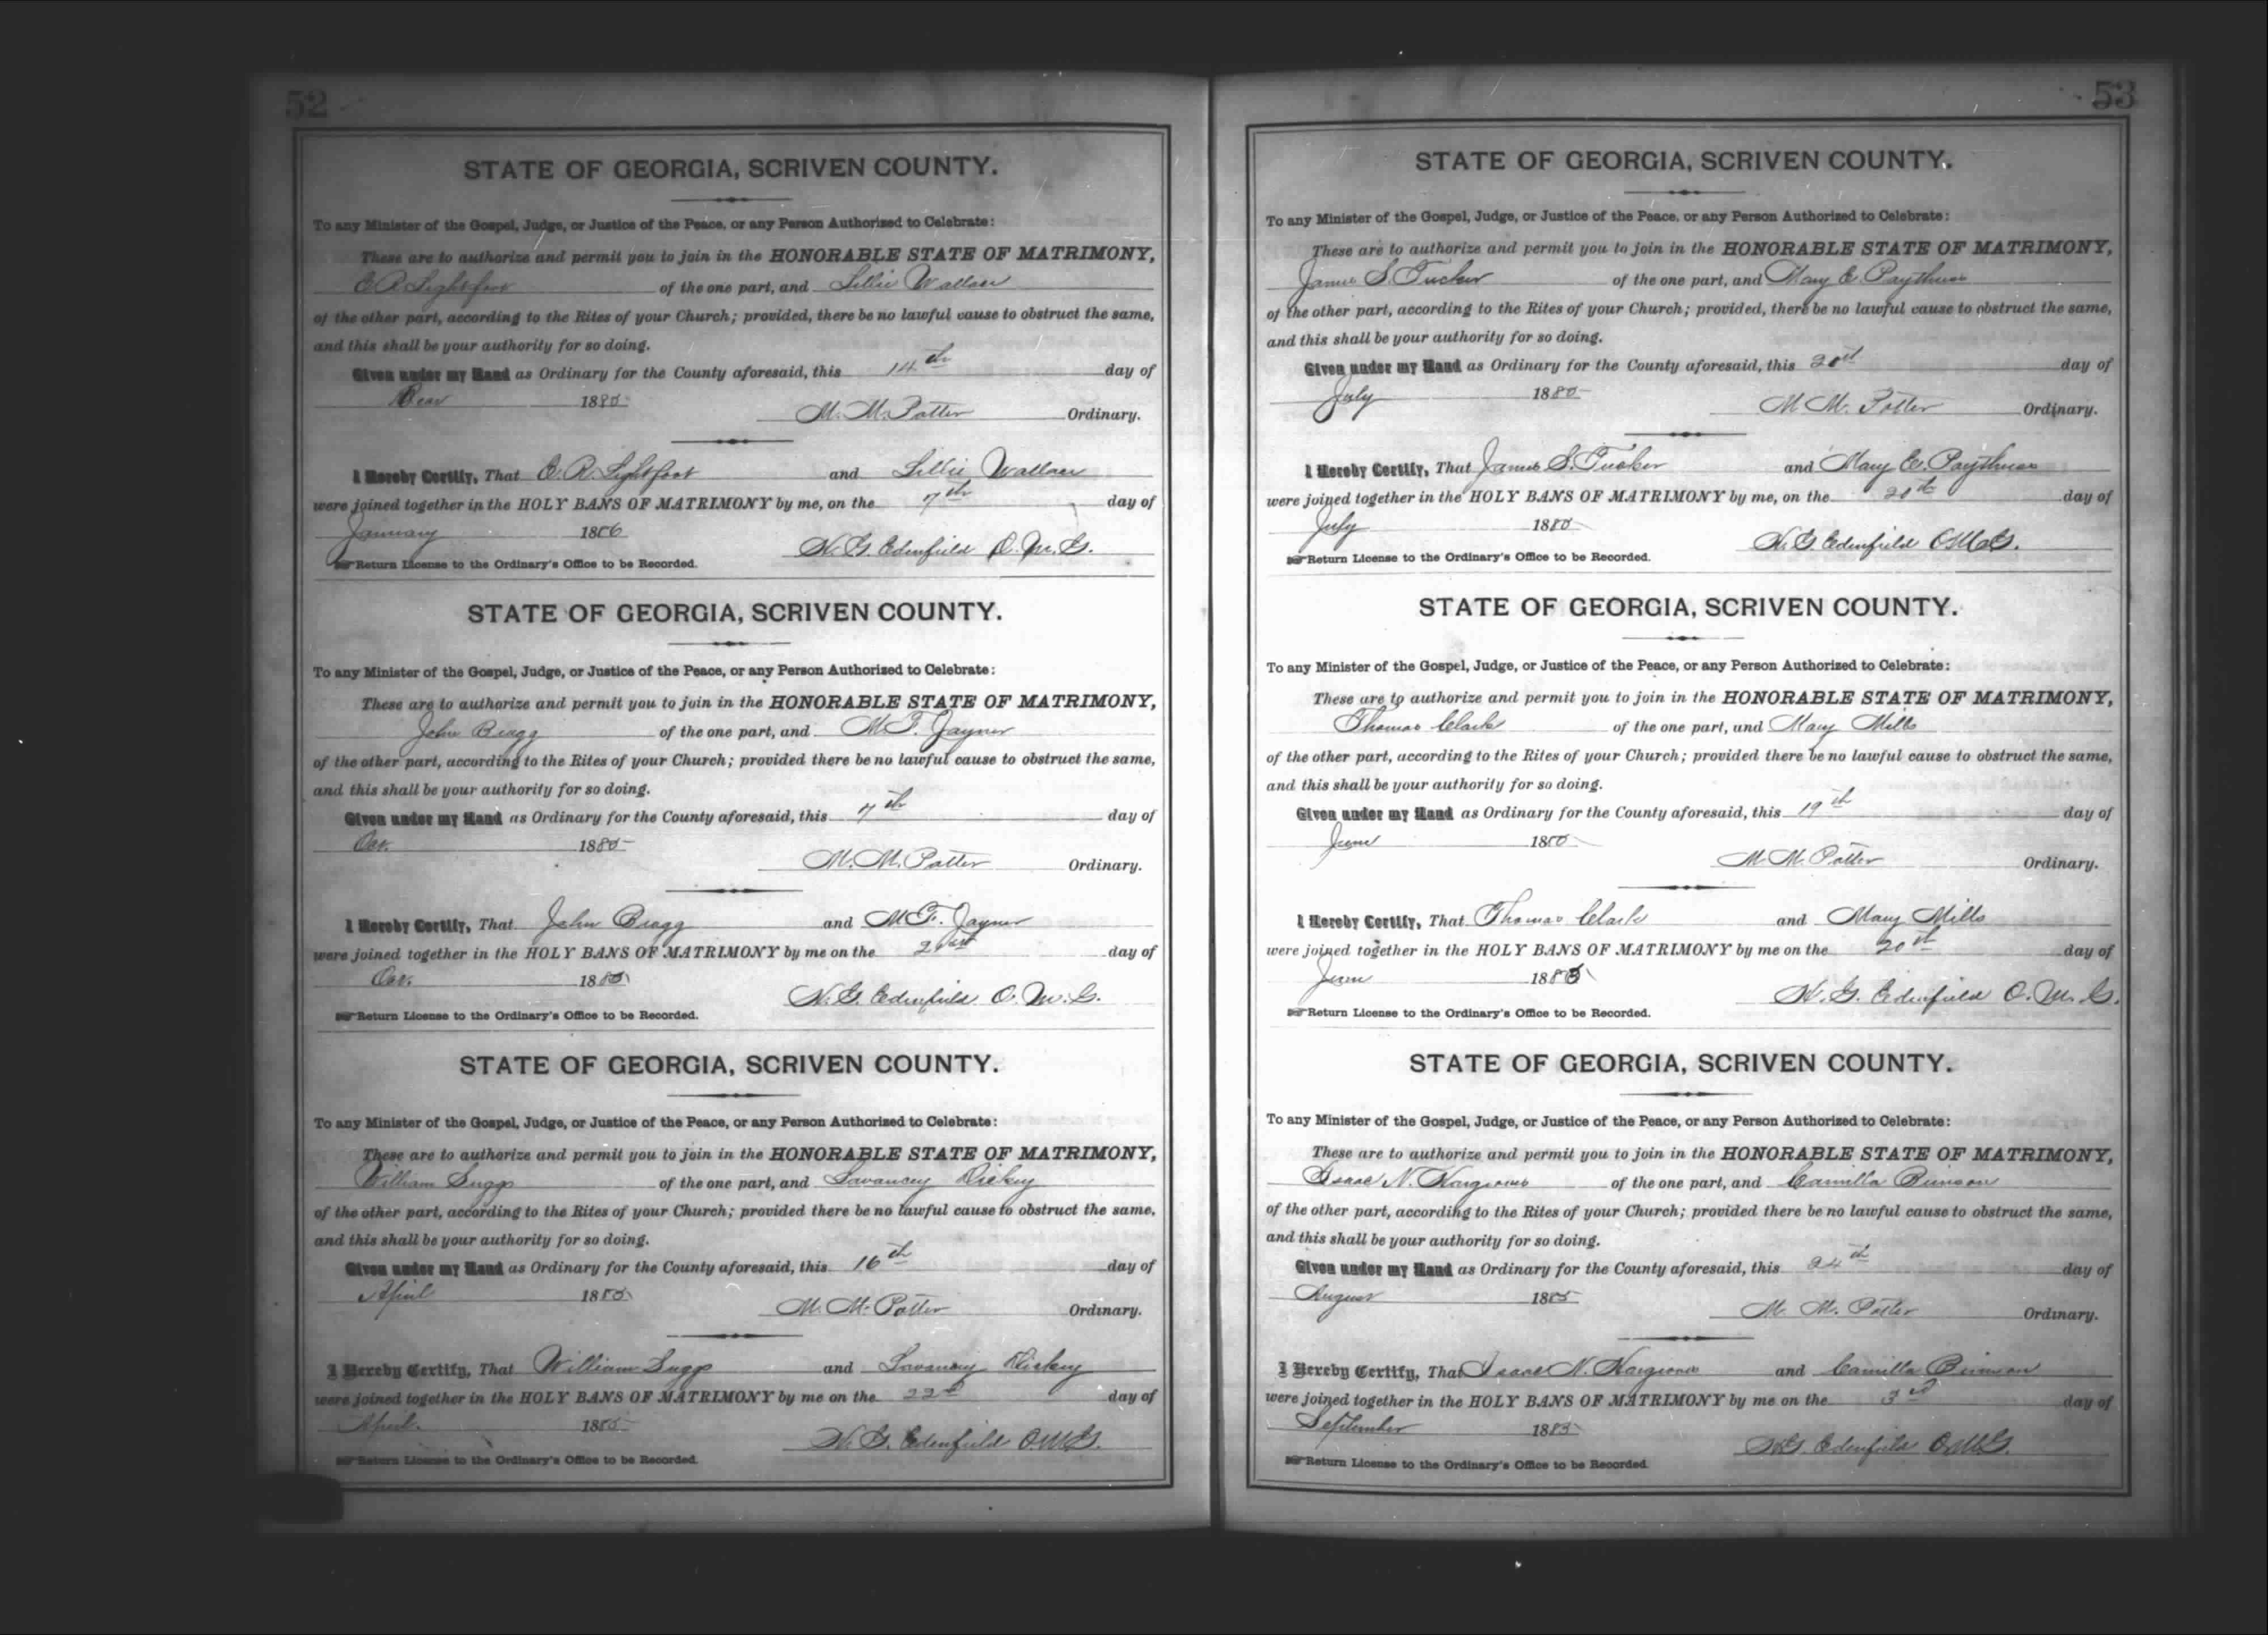 52
STATE OF GEORGIA, SCRIVEN COUNTY.
To any Minister of the Gospel, Judge, or Justice of the Peace, or any Person Authorized to Celebrate:
These are to authorize and permit you to join in the HONORABLE STATE OF MATRIMONY,
Lightfoot of the one part, and Lillie Wallace
of the other part, according to the Rites of your Church; provided, there be no lawful cause to obstruct the same,
and this shall be your authority for so doing.
Given under my Hand as Ordinary for the County aforesaid, this 14th day of
1885
M. M. Potter Ordinary.
I Hereby Certify, That R. Lightfoot and Lillie Wallace
were joined together in the HOLY BANS OF MATRIMONY by me, on the 7th day of
January 1886
N. G. Edenfield O. M. G.
Return License to the Ordinary's Office to be Recorded.
STATE OF GEORGIA, SCRIVEN COUNTY.
To any Minister of the Gospel, Judge, or Justice of the Peace, or any Person Authorized to Celebrate:
These are to authorize and permit you to join in the HONORABLE STATE OF MATRIMONY,
John Bragg of the one part, and M. F. Jayner
of the other part, according to the Rites of your Church; provided there be no lawful cause to obstruct the same,
and this shall be your authority for so doing.
Given under my Hand as Ordinary for the County aforesaid, this 7th day of
1885
M. M. Potter Ordinary.
I Hereby Certify, That John Bragg and M. F. Jayner
were joined together in the HOLY BANS OF MATRIMONY by me on the day of
1885
N. G. Edenfield O. M. G.
Return License to the Ordinary's Office to be Recorded.
STATE OF GEORGIA, SCRIVEN COUNTY.
To any Minister of the Gospel, Judge, or Justice of the Peace, or any Person Authorized to Celebrate:
These are to authorize and permit you to join in the HONORABLE STATE OF MATRIMONY,
William Suggs of the one part, and Savancy Dickey
of the other part, according to the Rites of your Church; provided there be no lawful cause to obstruct the same,
and this shall be your authority for so doing.
Given under my Hand as Ordinary for the County aforesaid, this 16th day of
April 1885
M. M. Potter Ordinary.
I Hereby Certify, That William Suggs and Savancy Dickey
were joined together in the HOLY BANS OF MATRIMONY by me on the 22d day of
April 1885
N. G. Edenfield O M G.
Return License to the Ordinary's Office to be Recorded.
53
STATE OF GEORGIA, SCRIVEN COUNTY.
To any Minister of the Gospel, Judge, or Justice of the Peace, or any Person Authorized to Celebrate:
These are to authorize and permit you to join in the HONORABLE STATE OF MATRIMONY,
James S. Tucker of the one part, and Mary E.
of the other part, according to the Rites of your Church; provided, there be no lawful cause to obstruct the same,
and this shall be your authority for so doing.
Given under my Hand as Ordinary for the County aforesaid, this day of
July 1885
M M. Potter Ordinary.
I Hereby Certify, That James S. Tucker and Mary E.
were joined together in the HOLY BANS OF MATRIMONY by me, on the 20th day of
July 1885
N. G. Edenfield O M G.
Return License to the Ordinary's Office to be Recorded.
STATE OF GEORGIA, SCRIVEN COUNTY.
To any Minister of the Gospel, Judge, or Justice of the Peace, or any Person Authorized to Celebrate:
These are to authorize and permit you to join in the HONORABLE STATE OF MATRIMONY,
Thomas Clark of the one part, and Mary Mills
of the other part, according to the Rites of your Church; provided there be no lawful cause to obstruct the same,
and this shall be your authority for so doing.
Given under my Hand as Ordinary for the County aforesaid, this 19th day of
June 1885
M. M. Potter Ordinary.
I Hereby Certify, That Thomas Clark and Mary Mills
were joined together in the HOLY BANS OF MATRIMONY by me on the 20th day of
June 1885
N. G. Edenfield O. M. G.
Return License to the Ordinary's Office to be Recorded.
STATE OF GEORGIA, SCRIVEN COUNTY.
To any Minister of the Gospel, Judge, or Justice of the Peace, or any Person Authorized to Celebrate:
These are to authorize and permit you to join in the HONORABLE STATE OF MATRIMONY,
Isaac N. Hargroves of the one part, and Camilla Brinson
of the other part, according to the Rites of your Church; provided there be no lawful cause to obstruct the same,
and this shall be your authority for so doing.
Given under my Hand as Ordinary for the County aforesaid, this 24th day of
August 1885
M. M. Potter Ordinary.
I Hereby Certify, That Isaac N. Hargroves and Camilla Brinson
were joined together in the HOLY BANS OF MATRIMONY by me on the 3rd day of
September 1885
N G Edenfield O M G.
Return License to the Ordinary's Office to be Recorded